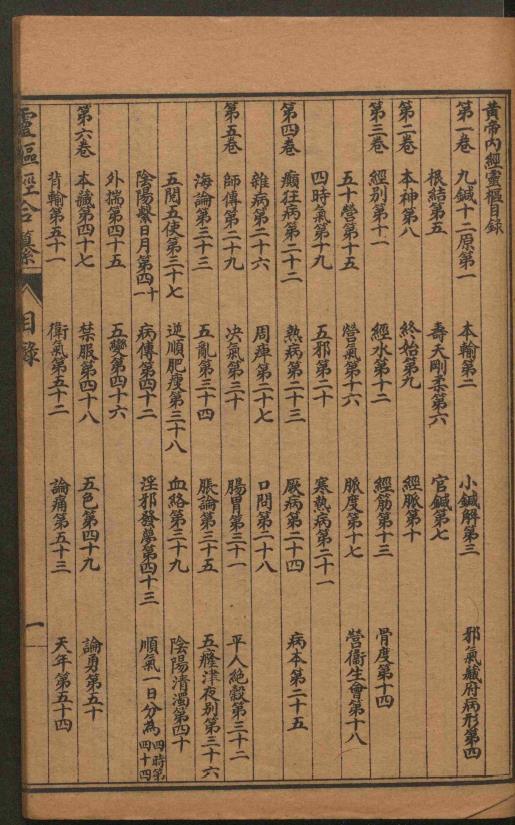 黄帝內經靈樞目録
第一卷 九鍼十二原第一 本輸第二 小鍼解第三 邪氣藏府病形第四
根結第五 壽夭剛柔第六 官鍼第七
第二卷 本神第八 終始第九 經脈第十
第三卷 經別第十一 經水第十二 經筋第十三 骨度第十四
五十營第十五 營氣第十六 脈度第十七 營衞生會第十八
四時氣第十九 五邪第二十 寒熱病第二十一
第四卷 癲狂病第二十二 熱病第二十三 厥病第二十四 病本第二十五
雜病第二十六 周痺第二十七 口問第二十八
第五卷 師傳第二十九 决氣第三十 腸胃第三十一 平人絶穀第三十二
海論第三十三 五亂第三十四 脹論第三十五 五癃津液别第三十六
五閱五使第三十七 逆順肥瘦第三十八 血絡第三十九 陰陽清濁第四十
陰陽繫日月第四十一 病傳第四十二 淫邪發夢第四十三 順氣一日分為四時第四十四
外揣第四十五 五變第四十六
第六卷 本藏第四十七 禁服第四十八 五色第四十九 論勇第五十
背輸第五十一 衞氣第五十二 論痛第五十三 天年第五十四
靈樞經合纂 目録 一